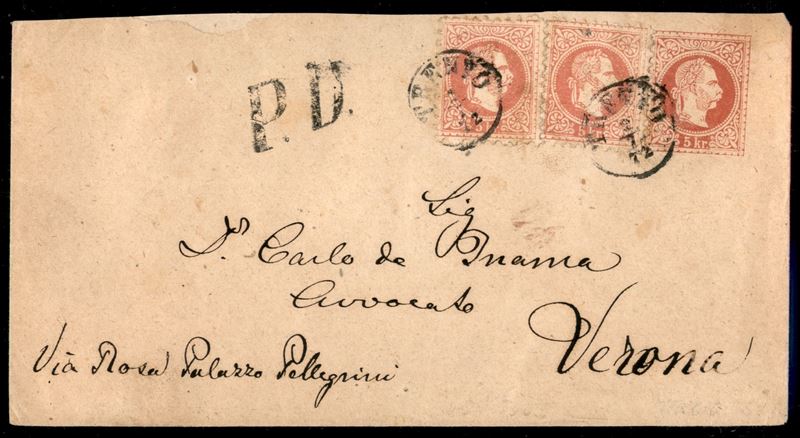 P.D.
TRENTO
TRENTO
5 kr.
Sig
Dr Carlo de Inama
Avvocato
Verona
Via Rosa Palazzo Pellegrini